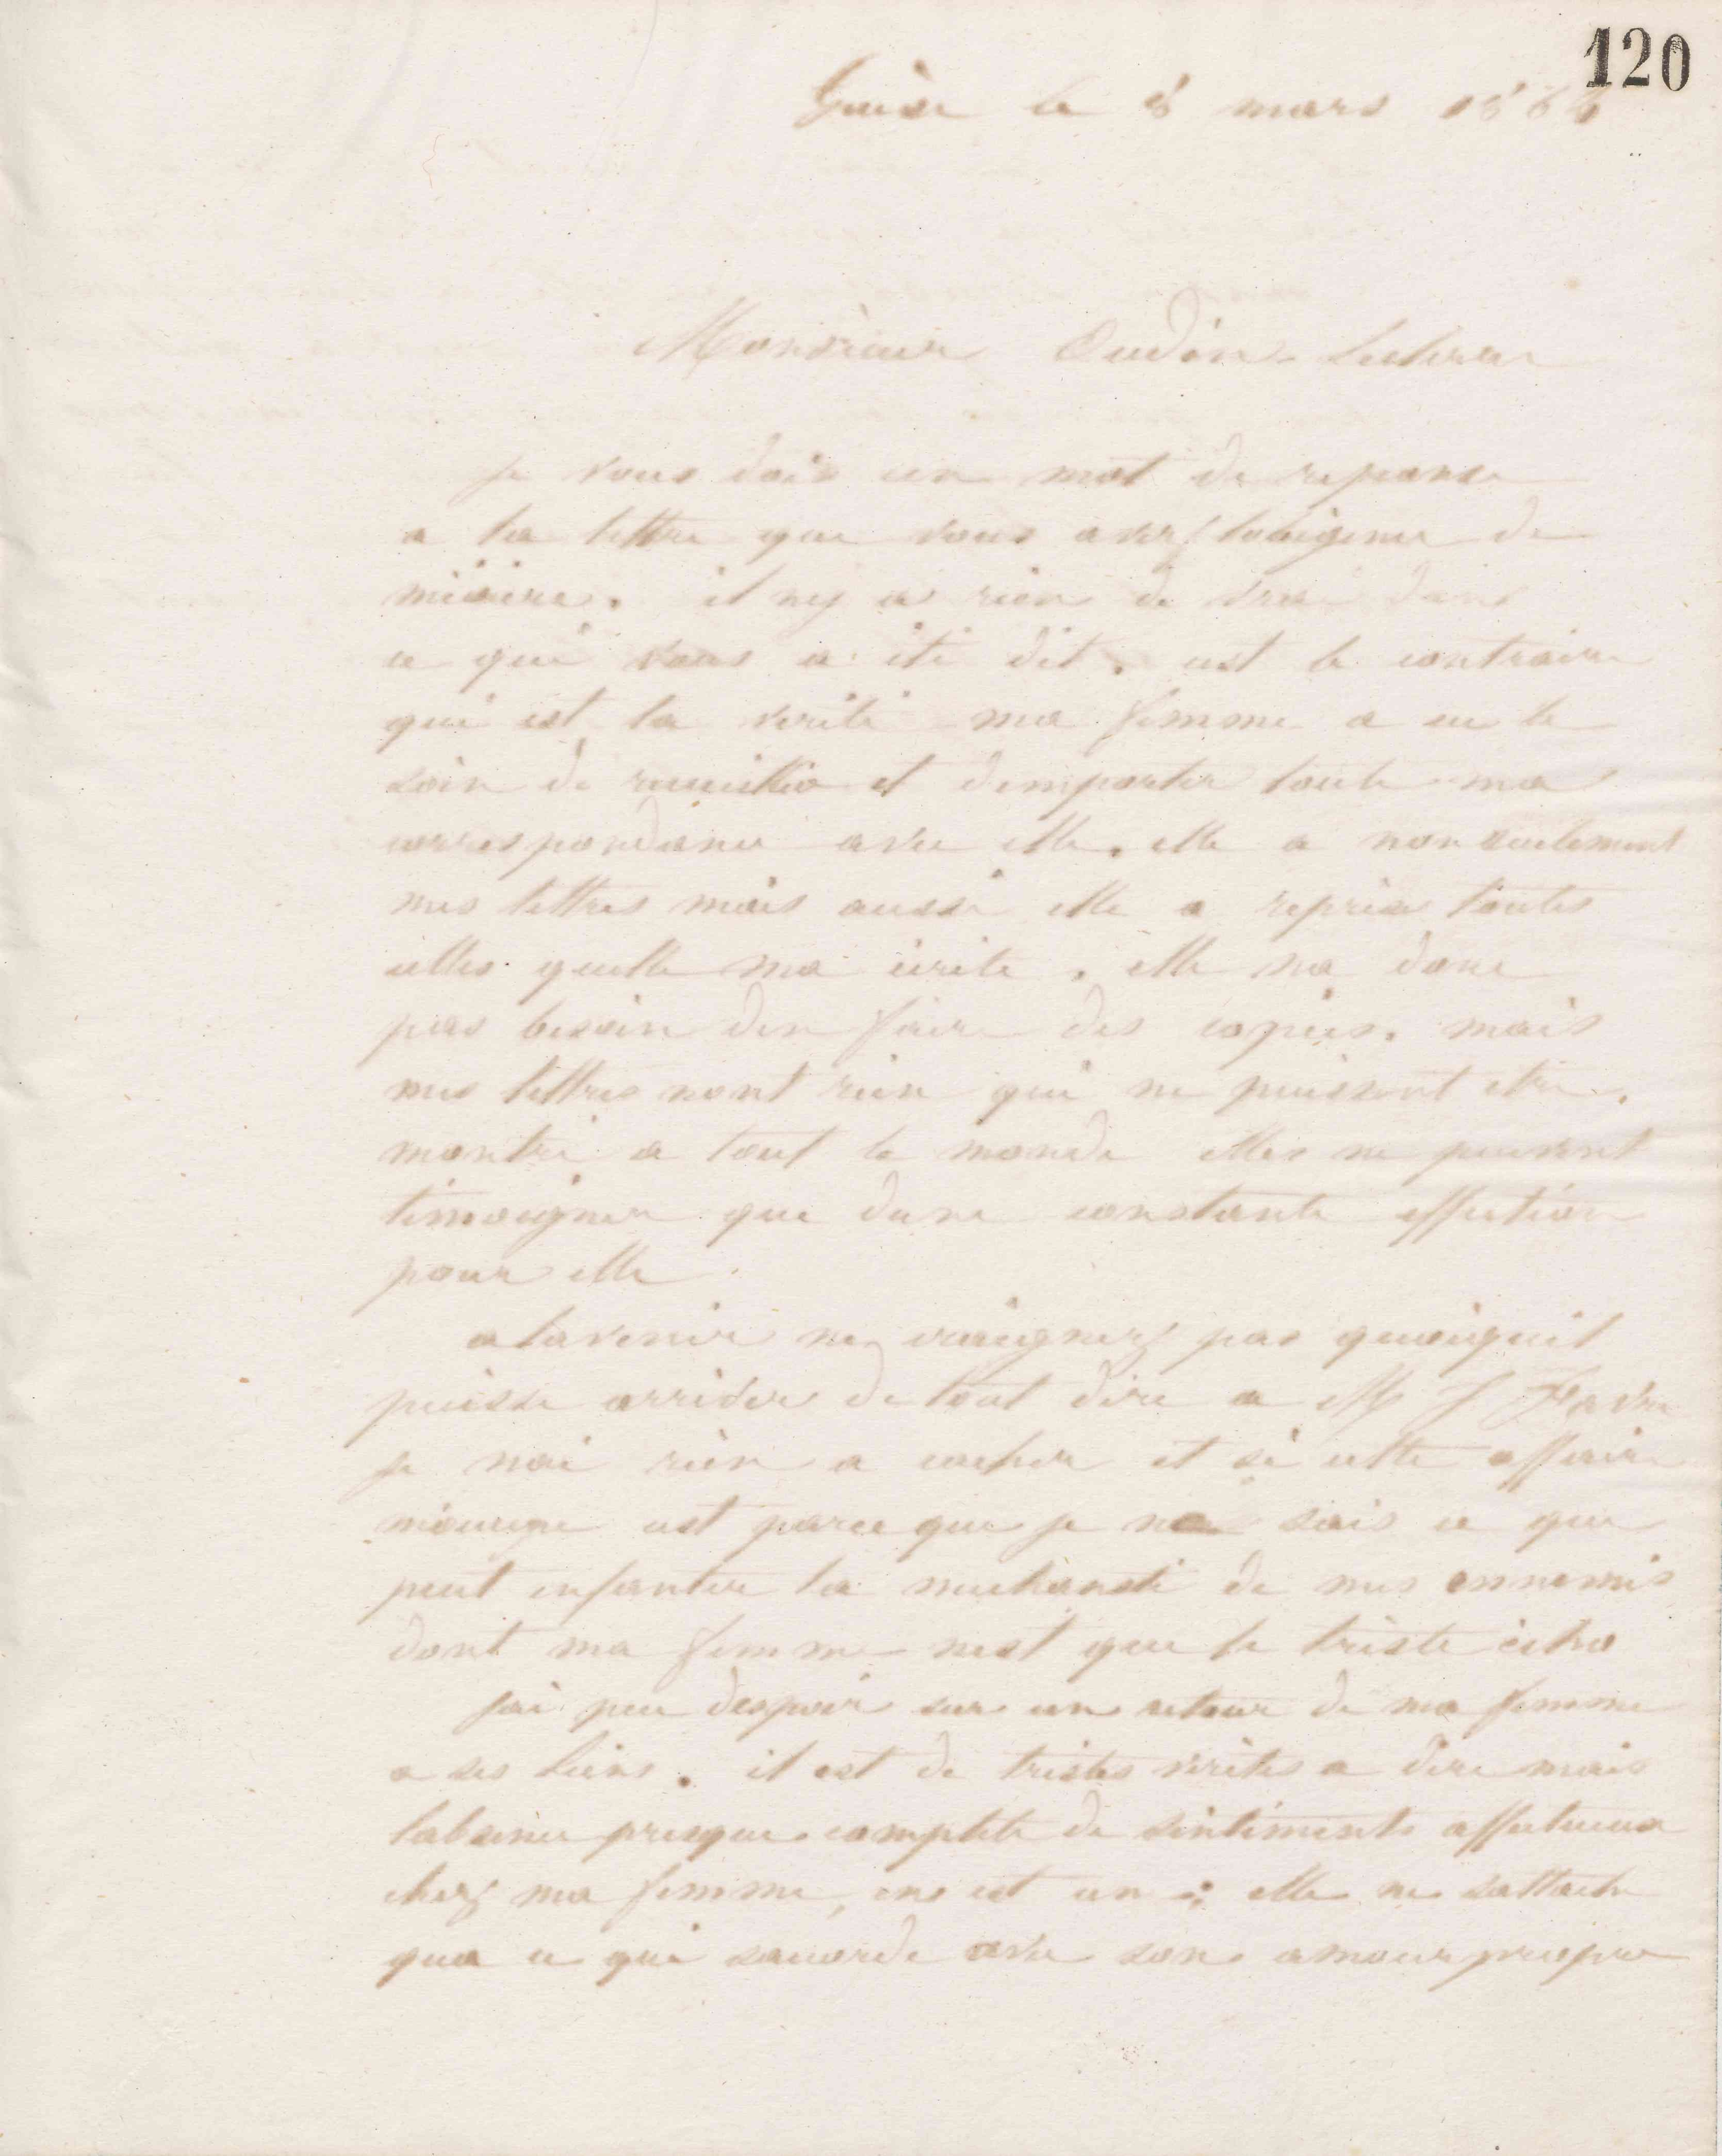 120
Guise le 8 mars 1864
Monsieur Oudin-Leclere
je vous dois un mot de reponse
a la lettre que vous avez lobigence de
mécrire. il ny a rien de vrai dans
ce qui vous a été dit. cest le contraire
qui est la verité ma femme a eu le
soin de recueillir et demporter toute ma
correspondance avec elle. elle a non seulement
mes lettres mais aussi elle a repris toutes
celles quelle ma écrite. elle na donc
pas besoin den faire des copies. mais
mes lettres nont rien qui ne puissent etre
montré a tout le monde elles ne peuvent
témoigner que dune constante affection
pour elle.
a lavenir ne craignez pas quoiquil
puisse arriver de tout dire a M J Favre
je nai rien a cacher et si cette affaire
mennuye cest parce que je ne sais ce que
peut enfanter la mechanceté de mes ennemis
dont ma femme nest que le triste écho
jai peu despoir sur un retour de ma femme
a ses liens. il est de tristes vérités a dire mais
labsence presque complete de sentiments affectueux
chez ma femme, en est un : elle ne sattache
qua ce qui saccorde avec son amour propre